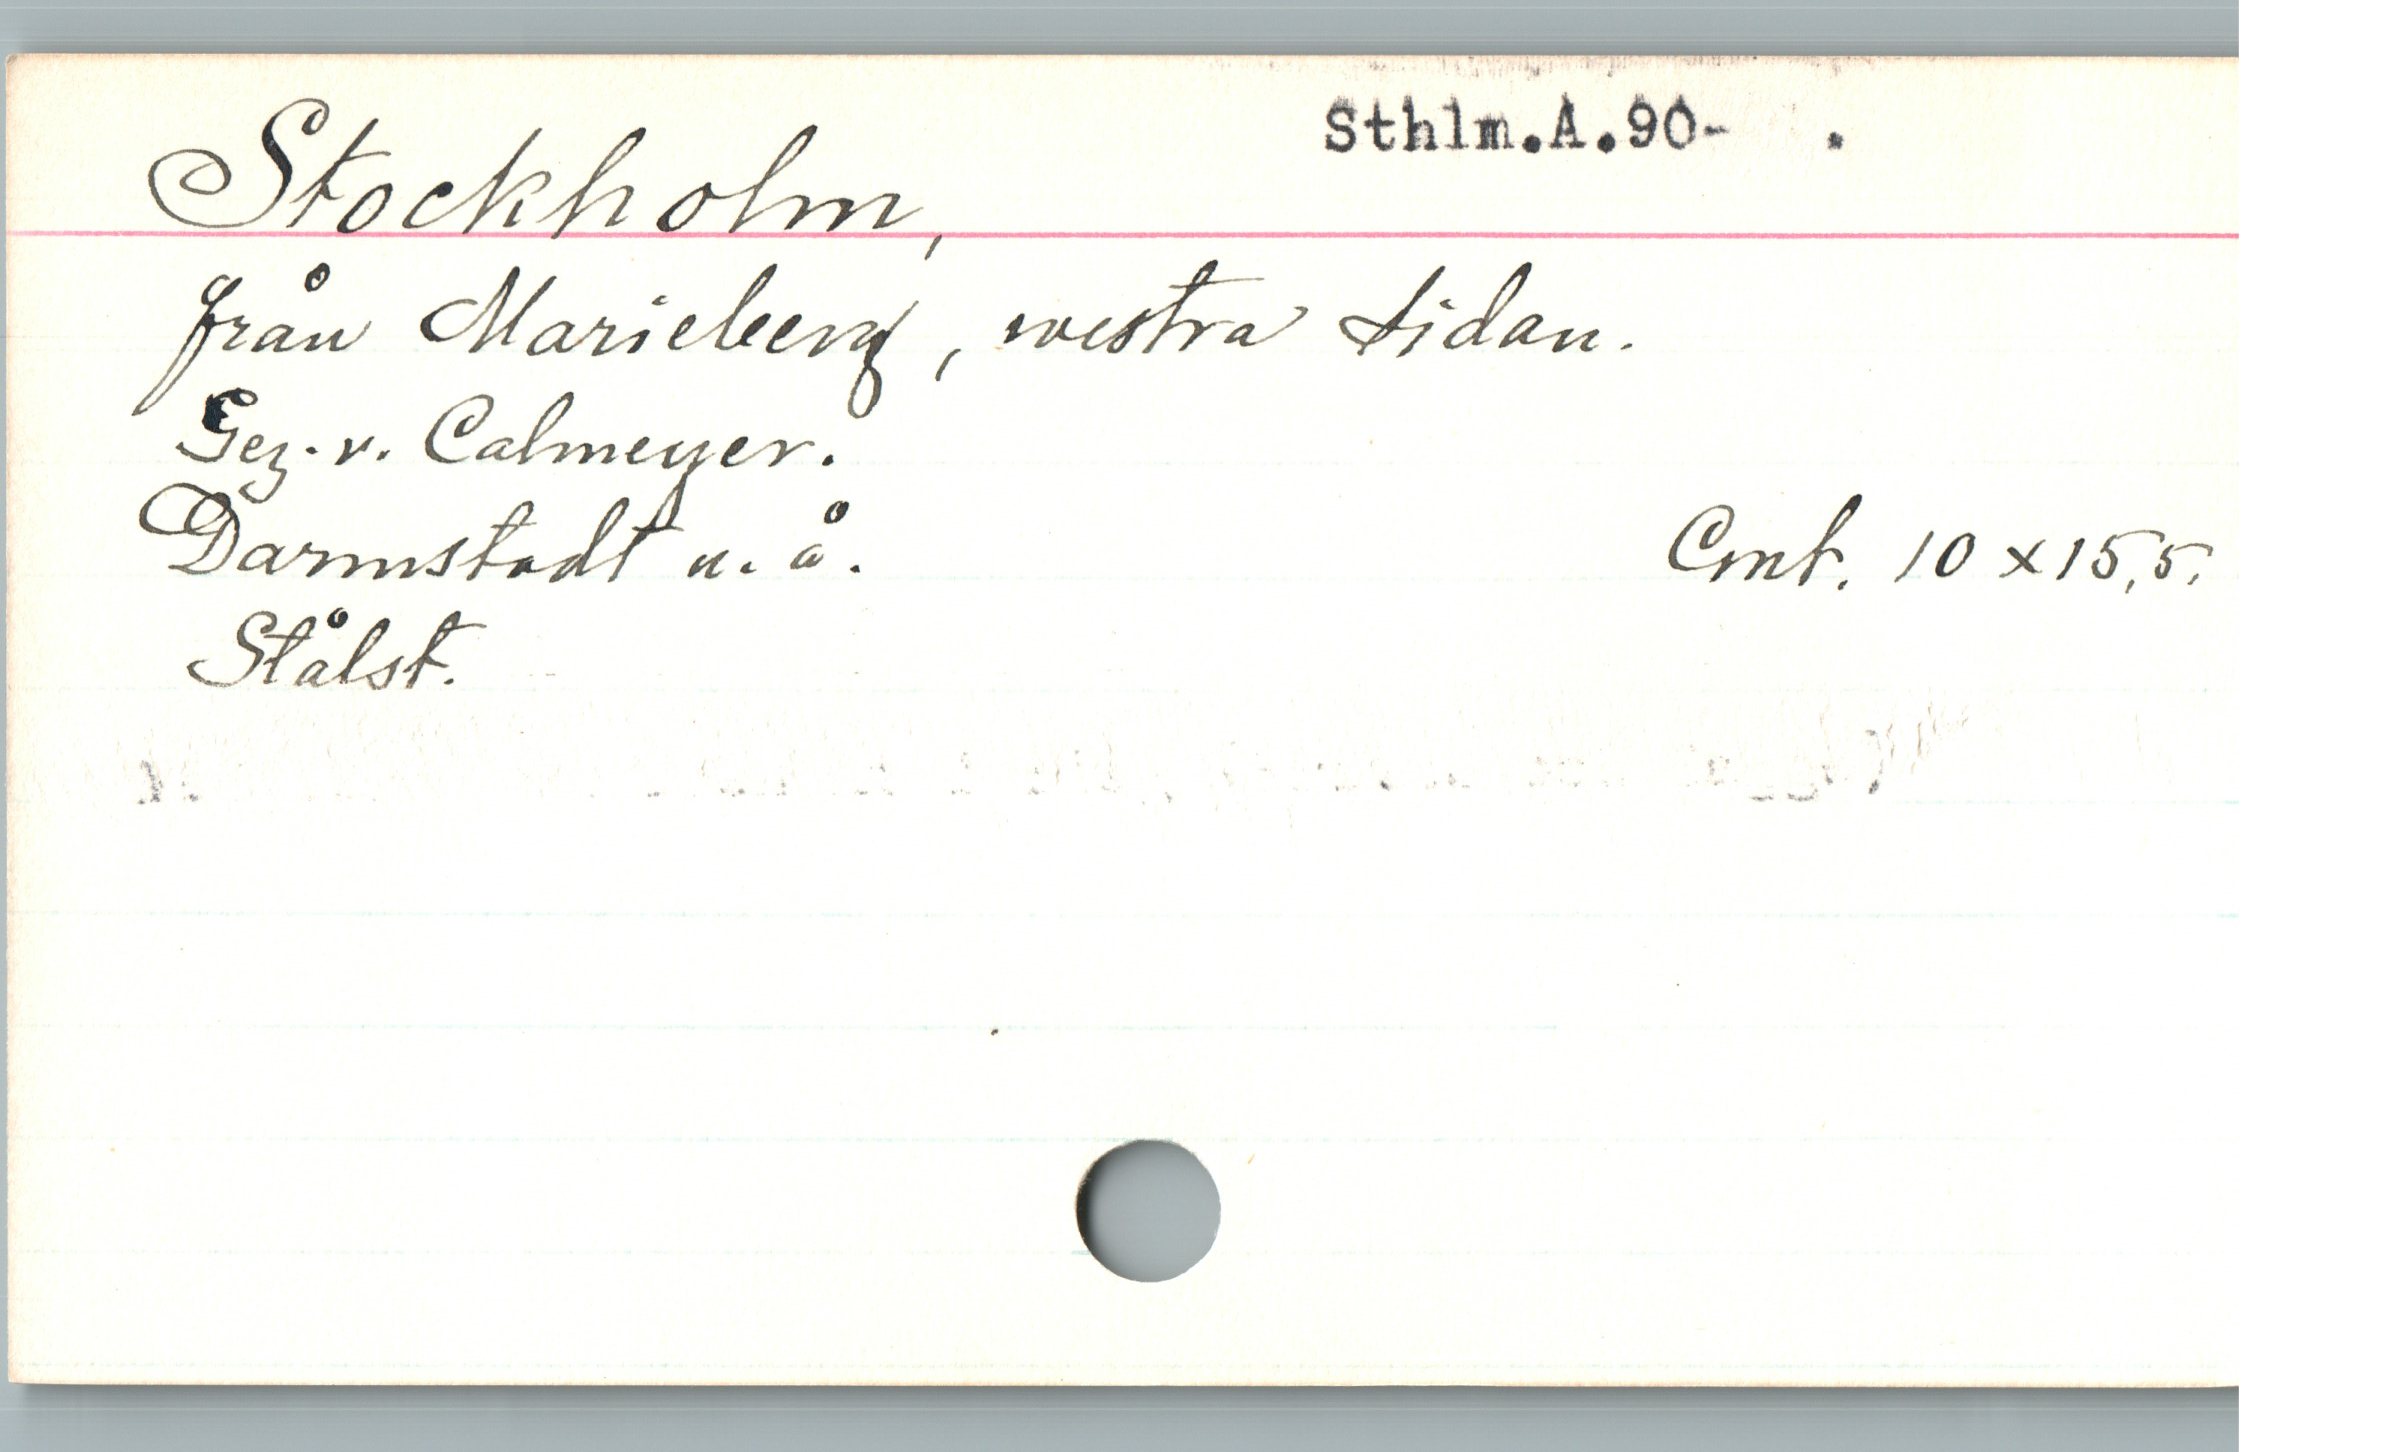 Sthlm.A.90- .
Stockholm,
från Marieberg, westra sidan.
Gez. v. Calmeyer.
Darmstadt u. å.
Cmt. 10 x 15,5.
Stålst.